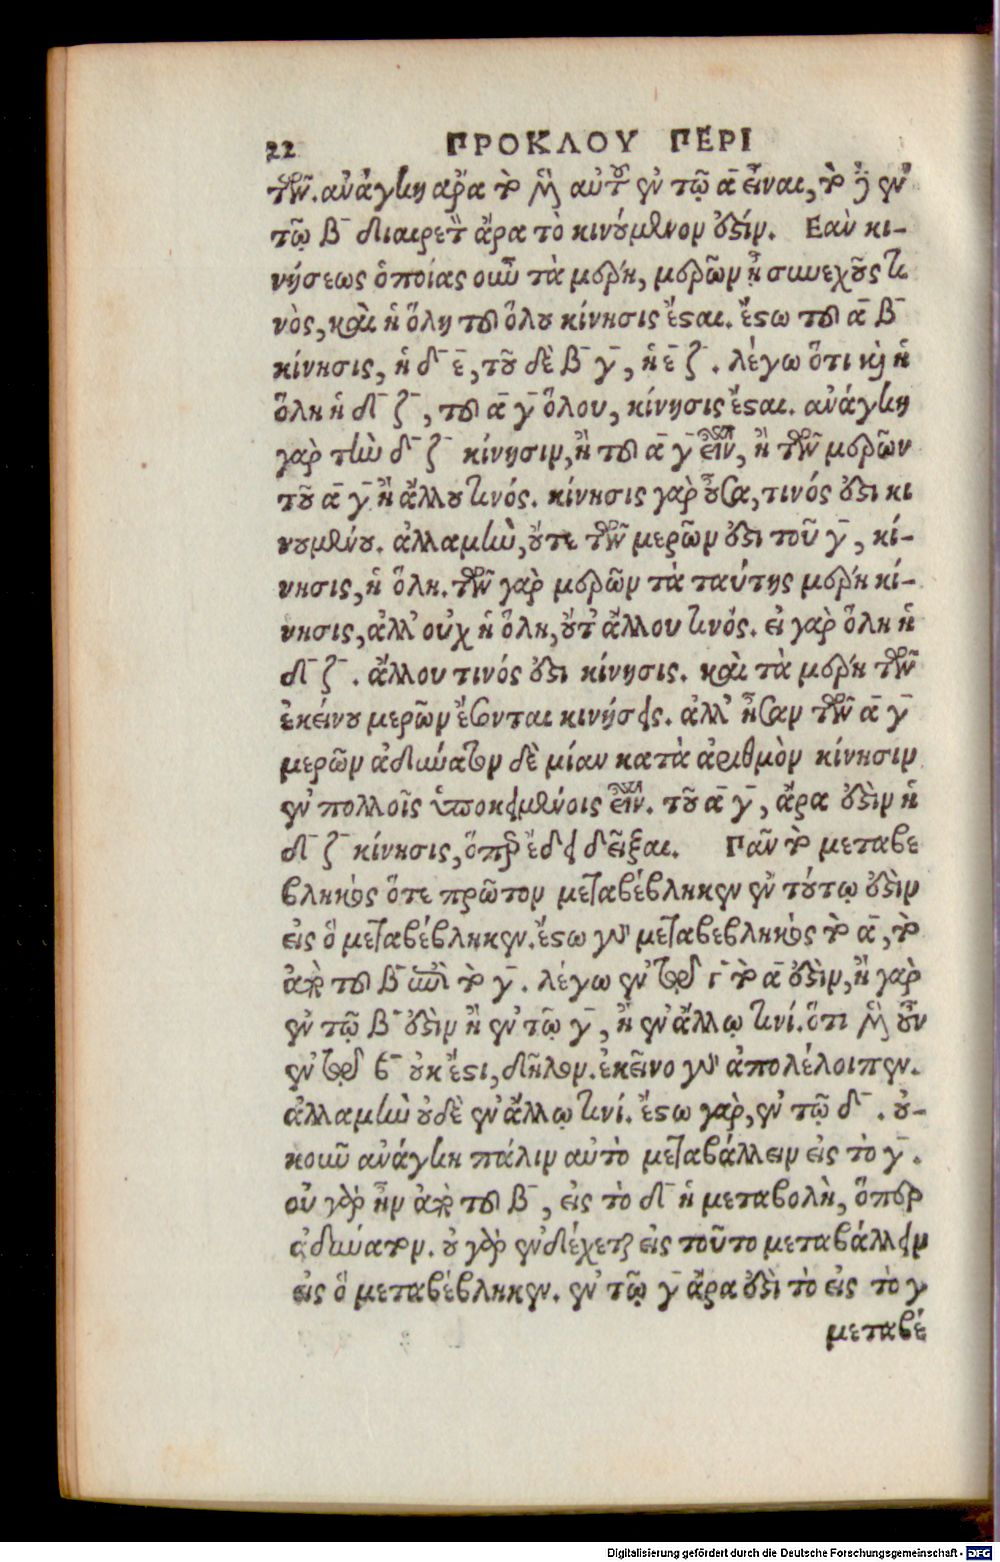 22 ΠΡΟΚΛΟΥ ΠΕΡΙ
τῶν. ἀνάγκη ἄρα τὸ μὲν αὐτοῦ ἐν τῷ α̅ εἶναι, τὸ δ' ἐν
τῷ β̅ διαιρετὸν ἄρα τὸ κινούμενον ἐστίν. Εαν κι-
νήσεως ὁποίας οὖν τὰ μέρη, μερῶν ᾖ συνεχοῦς τι
νὸς, καὶ ἡ ὅλη τοῦ ὅλου κίνησις ἔσται. ἔστω τοῦ α̅ β̅
κίνησις, ἡ δ̅ ε̅, τοῦ δὲ β̅ γ̅, ἡ ε̅ ζ̅. λέγω ὅτι καὶ ἡ
ὅλη ἡ δ̅ ζ̅, τοῦ α̅ γ̅ ὅλου, κίνησις ἔσται. ἀνάγκη
γὰρ τὴν δ̅ ζ̅ κίνησιν, ἢ τοῦ α̅ γ̅ εἶναι, ἢ τῶν μερῶν
τοῦ α̅ γ̅ ἢ ἄλλου τινός. κίνησις γὰρ οὖσα, τινός ἐστι κι
νουμένου. ἀλλαμὴν, οὔτε τῶν μερῶν ἐστι τοῦ γ̅, κί-
νησις, ἡ ὅλη. τῶν γὰρ μερῶν τὰ ταύτης μέρη κί-
νησις, ἀλλ' οὐχ ἡ ὅλη, οὔτ' ἄλλου τινός. εἰ γὰρ ὅλη ἡ
δ̅ ζ̅. ἄλλου τινός ἐστι κίνησις. καὶ τὰ μέρη τῶν
ἐκείνου μερῶν ἔσονται κινήσεις. ἀλλ' ἦσαν τῶν α̅ γ̅
μερῶν ἀδύνατον δὲ μίαν κατὰ ἀριθμὸν κίνησιν
ἐν πολλοῖς ὑποκειμένοις εἶναι. τοῦ α̅ γ̅, ἄρα ἐστὶν ἡ
δ̅ ζ̅ κίνησις, ὅπερ ἔδει δεῖξαι. Πᾶν τὸ μεταβε
βληκὸς ὅτε πρῶτον μεταβέβληκεν ἐν τούτῳ ἐστὶν
εἰς ὃ μεταβέβληκεν. ἔστω γὰρ μεταβεβληκὸς τὸ α̅, τὸ
ἀπὸ τοῦ β̅ ἐπὶ τὸ γ̅. λέγω ἐν τῷ γ̅ τὸ α̅ ἐστὶν, ἢ γὰρ
ἐν τῷ β̅ ἐστὶν ἢ ἐν τῷ γ̅, ἢ ἐν ἄλλῳ τινί. ὅτι μὲν οὖν
ἐν τῷ β̅ οὐκ ἔστι, δῆλον. ἐκεῖνο γὰρ ἀπολέλοιπεν.
ἀλλαμὴν οὐδὲ ἐν ἄλλῳ τινί. ἔστω γὰρ, ἐν τῷ δ̅. οὐ-
κοῦν ἀνάγκη πάλιν αὐτὸ μεταβάλλειν εἰς τὸ γ̅.
οὐ γὰρ ἦν ἀπὸ τοῦ β̅, εἰς τὸ δ̅ ἡ μεταβολὴ, ὅπερ
ἀδύνατον. οὐ γὰρ ἐνδέχεται εἰς τοῦτο μεταβάλλειν
εἰς ὃ μεταβέβληκεν. ἐν τῷ γ̅ ἄρα ἐστὶ τὸ εἰς τὸ γ
μεταβέ
Digitalisierung gefördert durch die Deutsche Forschungsgemeinschaft - DFG